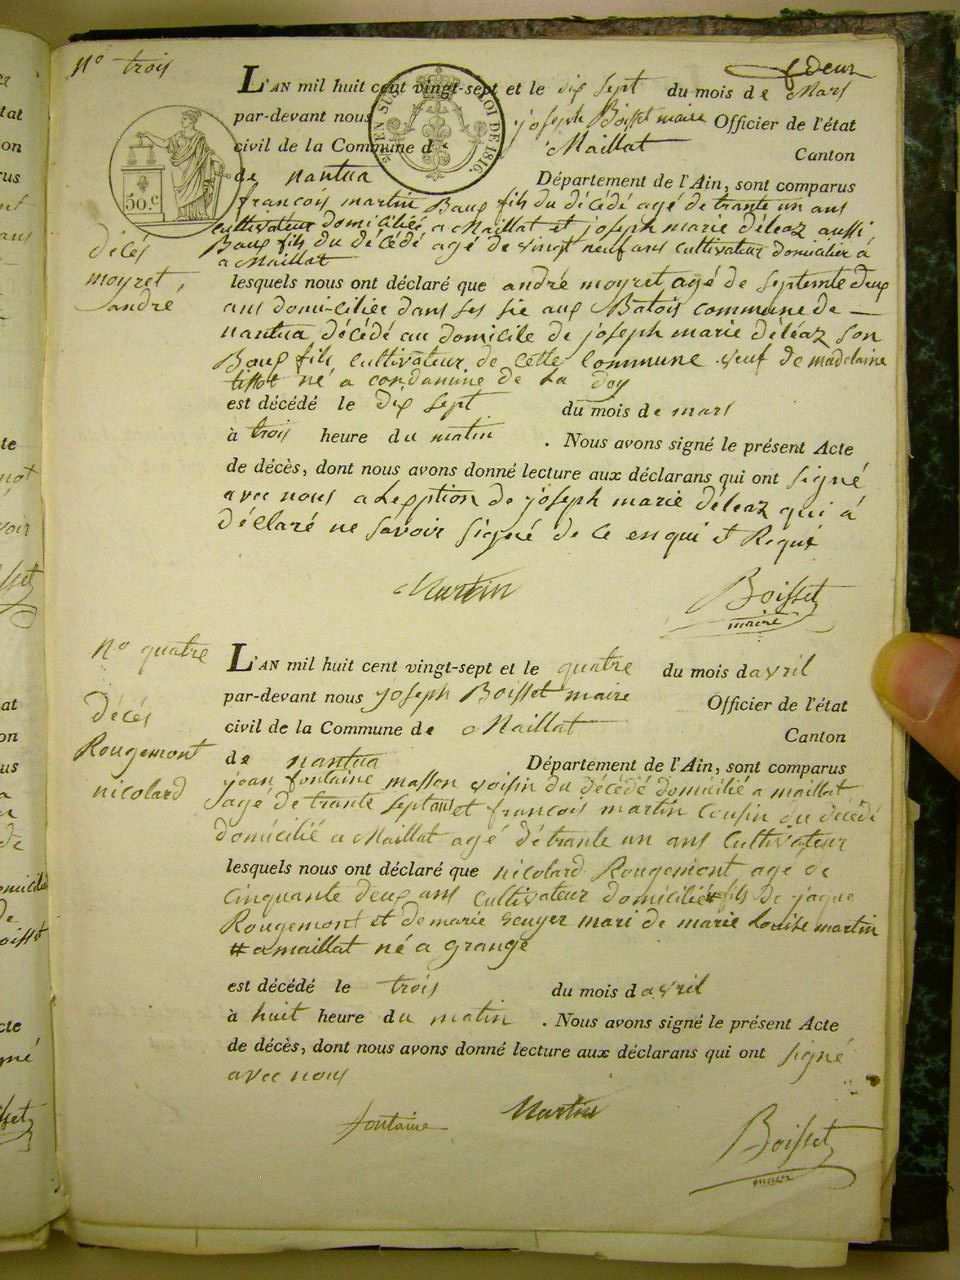 N.o trois
f deux
L'AN mil huit cent vingt-sept et le dix sept du mois de Mars
par-devant nous joseph Boisset maire Officier de l'état
civil de la Commune de Maillat Canton
de nantua Département de l'Ain, sont comparus
françois martin Baux fils du décédé agé de trante un ans
cultivateur domicilié a Maillat et joseph marie déléaz aussi
Baux fils du décédé agé de vingt neuf ans cultivateur domicilier à
a Maillat
décés
moyret
andré
lesquels nous ont déclaré que andré moyret agé de septente deux
ans domicilier dans ses vie aux Batois commune de
nantua décédé au domicile de joseph marie déléaz son
Baux fils cultivateur de cette commune veuf de madelaine
tissot né a condamine de La Doy
est décédé le dix sept du mois de mars
à trois heure du matin . Nous avons signé le présent Acte
de décès, dont nous avons donné lecture aux déclarans qui ont signé
avec nous a Lexption de joseph marie déléaz qui à
déclaré ne savoir signé de ce enqui et Requi
Martin
Boisset
maire
N.o quatre
L'AN mil huit cent vingt-sept et le quatre du mois davril
par-devant nous joseph Boisset maire Officier de l'état
civil de la Commune de Maillat Canton
de nantua Département de l'Ain, sont comparus
décés
Rougemont
nicolard
jean fontaine masson voisin du décédé domicilié a maillat
agé de trante sept ans et françois martin cousin du décédé
domicilié a Maillat agé détrante un ans Cultivateur
lesquels nous ont déclaré que nicolard Rougemont agé de
cinquante deux ans cultivateur domicilié # fils de jaque
Rougemont et de marie mari de marie Louise martin
# a maillat né a grange
est décédé le trois du mois davril
à huit heure du matin . Nous avons signé le présent Acte
de décès, dont nous avons donné lecture aux déclarans qui ont signé
avec nous
fontaine
Martin
Boisset
maire
50 c.
LOI DE 1816.